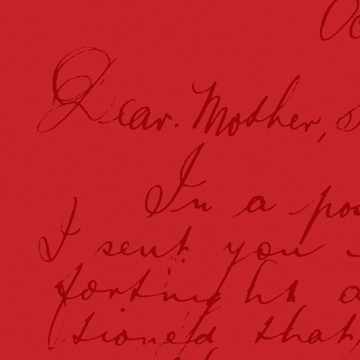 Dear Mother,
In a
I sent you
fortnight
tioned that